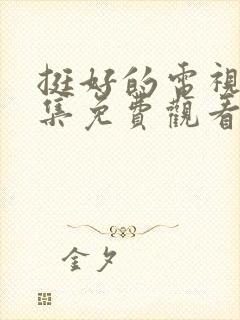 挺好的電視
集免費觀看
金夕